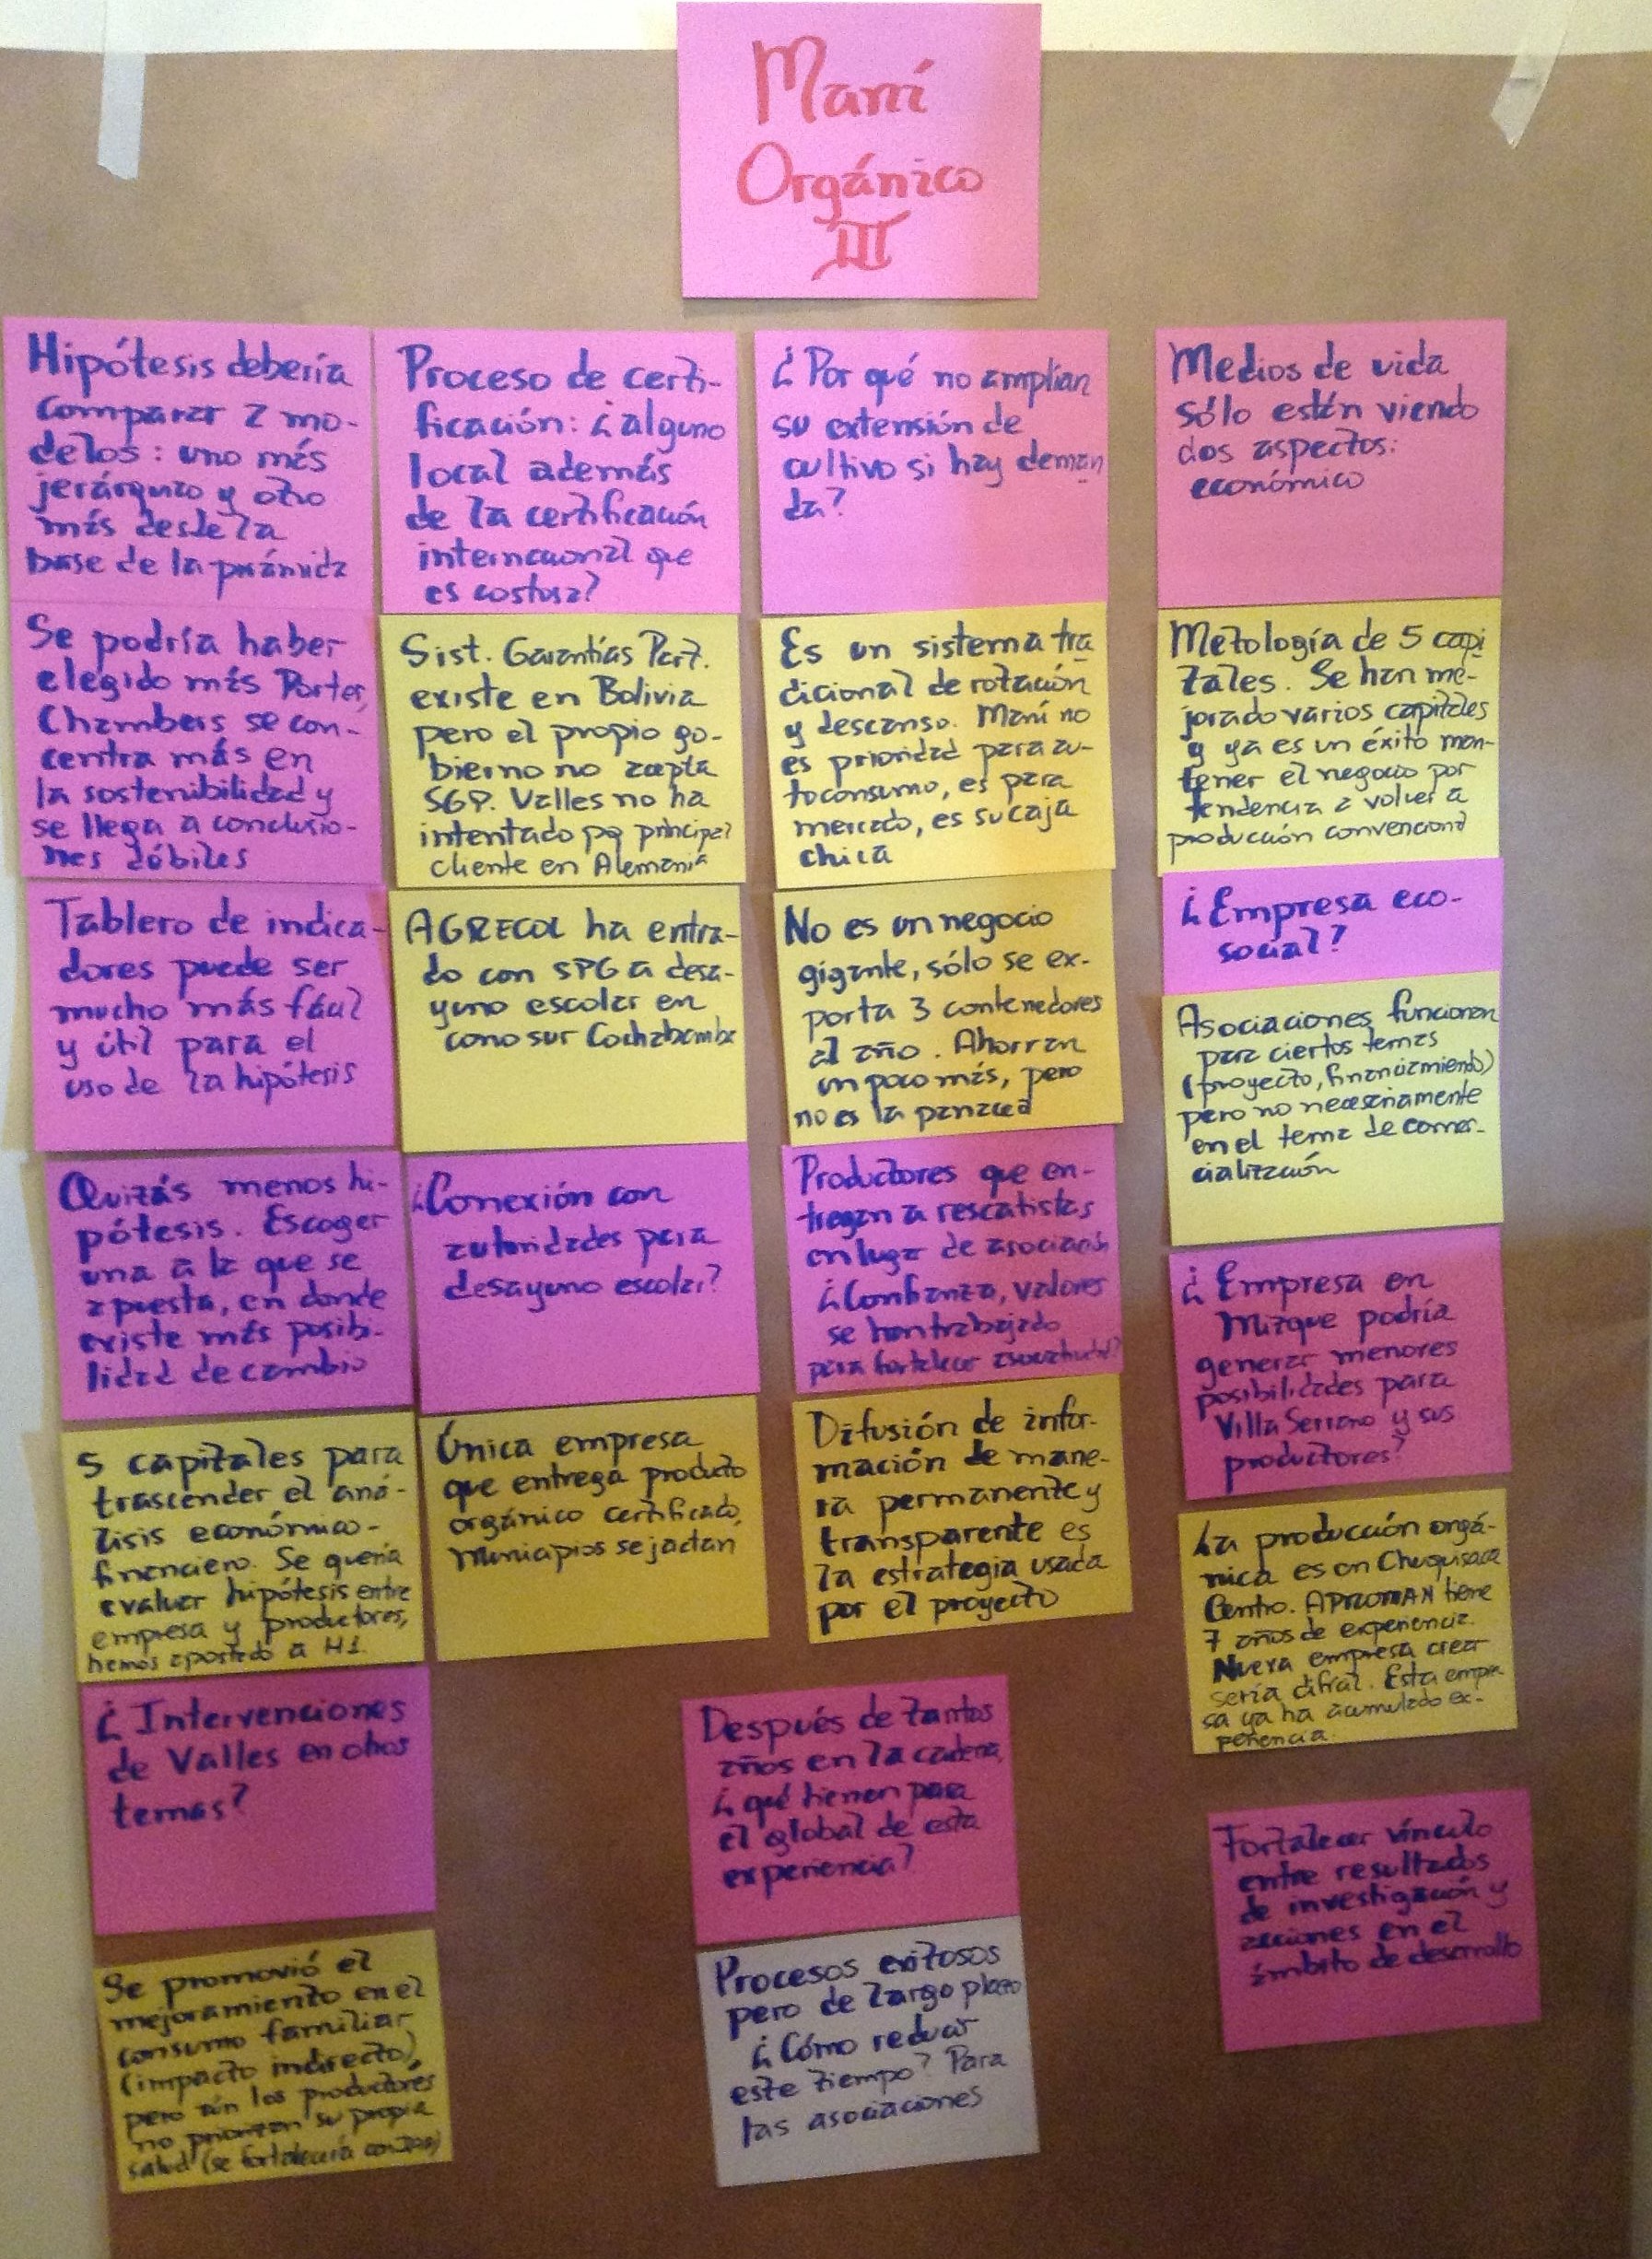 Maní
Orgánico
III
Hipótesis debería
comparar 2 mo-
delos: uno más
jerárquico y otro
más desde la
base de la pirámide
Se podría haber
elegido más Porter,
Chambers se con-
centra más en
la sostenibilidad y
se llega a conclusio-
nes débiles
Tablero de indica-
dores puede ser
mucho más fácil
y útil para el
uso de la hipótesis
Quizás menos hi-
pótesis. Escoger
una a la que se
apuesta, en donde
existe más posibi-
lidad de cambio
5 capitales para
trascender el aná-
lisis económico-
financiero. Se quería
evaluar hipótesis entre
empresa y productores,
hemos apostado a H1.
¿Intervenciones
de Valles en otros
temas?
Se promovió el
mejoramiento en el
consumo familiar
(impacto indirecto),
pero aún los productores
no priorizan su propia
salud (se fortalecerá con
Proceso de certi-
ficación: ¿alguno
local además
de la certificación
internacional que
es costosa?
Sist. Garantías Part.
existe en Bolivia
pero el propio go-
bierno no acepta
SGP. Valles no ha
intentado pq principal
cliente en Alemania
AGRECOL ha entra-
do con SPG a desa-
yuno escolar en
cono sur Cochabamba
¿Conexión con
autoridades para
desayuno escolar?
Única empresa
que entrega producto
orgánico certificado,
municipios se jactan
¿Por qué no amplían
su extensión de
cultivo si hay deman
da?
Es un sistema tra
dicional de rotación
y descanso. Maní no
es prioridad para au-
toconsumo, es para
mercado, es su caja
chica
No es un negocio
gigante, sólo se ex-
porta 3 contenedores
al año. Ahorran
un poco más, pero
no es la panacea
Productores que en-
tregan a rescatistas
en lugar de asociación
¿Confianza, valores
se han trabajado
para fortalecer asociatividad?
Difusión de infor-
mación de mane-
ra permanente y
transparente es
la estrategia usada
por el proyecto
Medios de vida
sólo están viendo
dos aspectos:
económico
Metología de 5 capi
tales. Se han me-
jorado varios capitales
y ya es un éxito man-
tener el negocio por
tendencia a volver a
producción convencional
¿Empresa eco-
social?
Asociaciones funcionan
para ciertos temas
(proyecto, financiamiento)
pero no necesariamente
en el tema de comer-
cialización
¿Empresa en
Mizque podría
generar menores
posibilidades para
Villa Serrano y sus
productores?
La producción orgá-
nica es en Chuquisaca
Centro. APROMAN tiene
7 años de experiencia.
Nueva empresa crear
sería difícil. Esta empre
sa ya ha acumulado ex-
periencia.
Después de tantos
años en la cadena,
¿qué tienen para
el global de esta
experiencia?
Procesos exitosos
pero de largo plazo
¿Cómo reducir
este tiempo? Para
las asociaciones
Fortalecer vínculo
entre resultados
de investigación y
acciones en el
ámbito de desarrollo